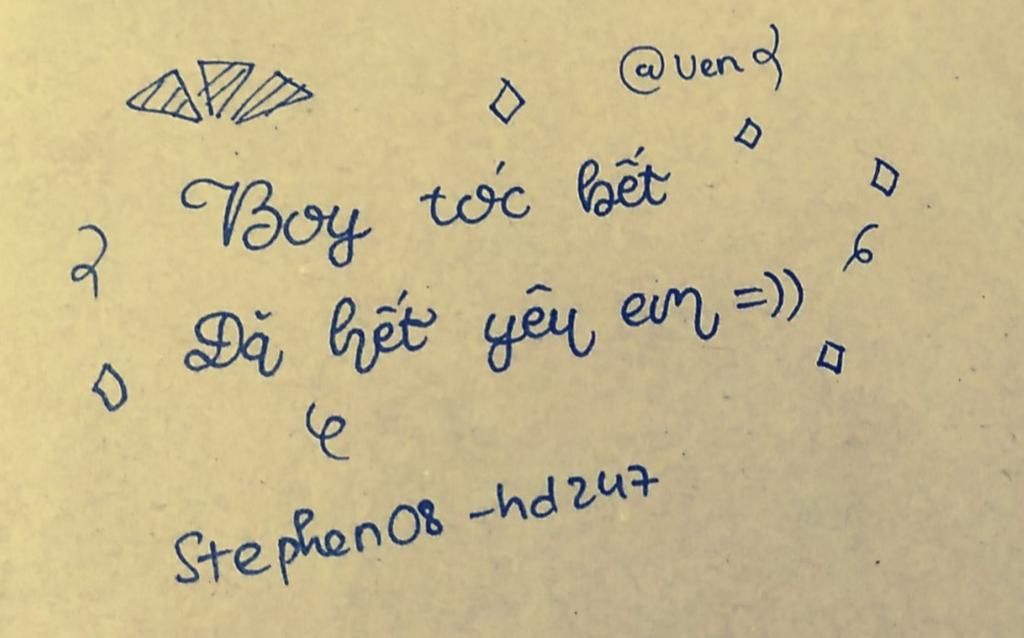 @Ven
Boy tớc bết
Dặ hết yêu em =))
Stephen08 -hd247